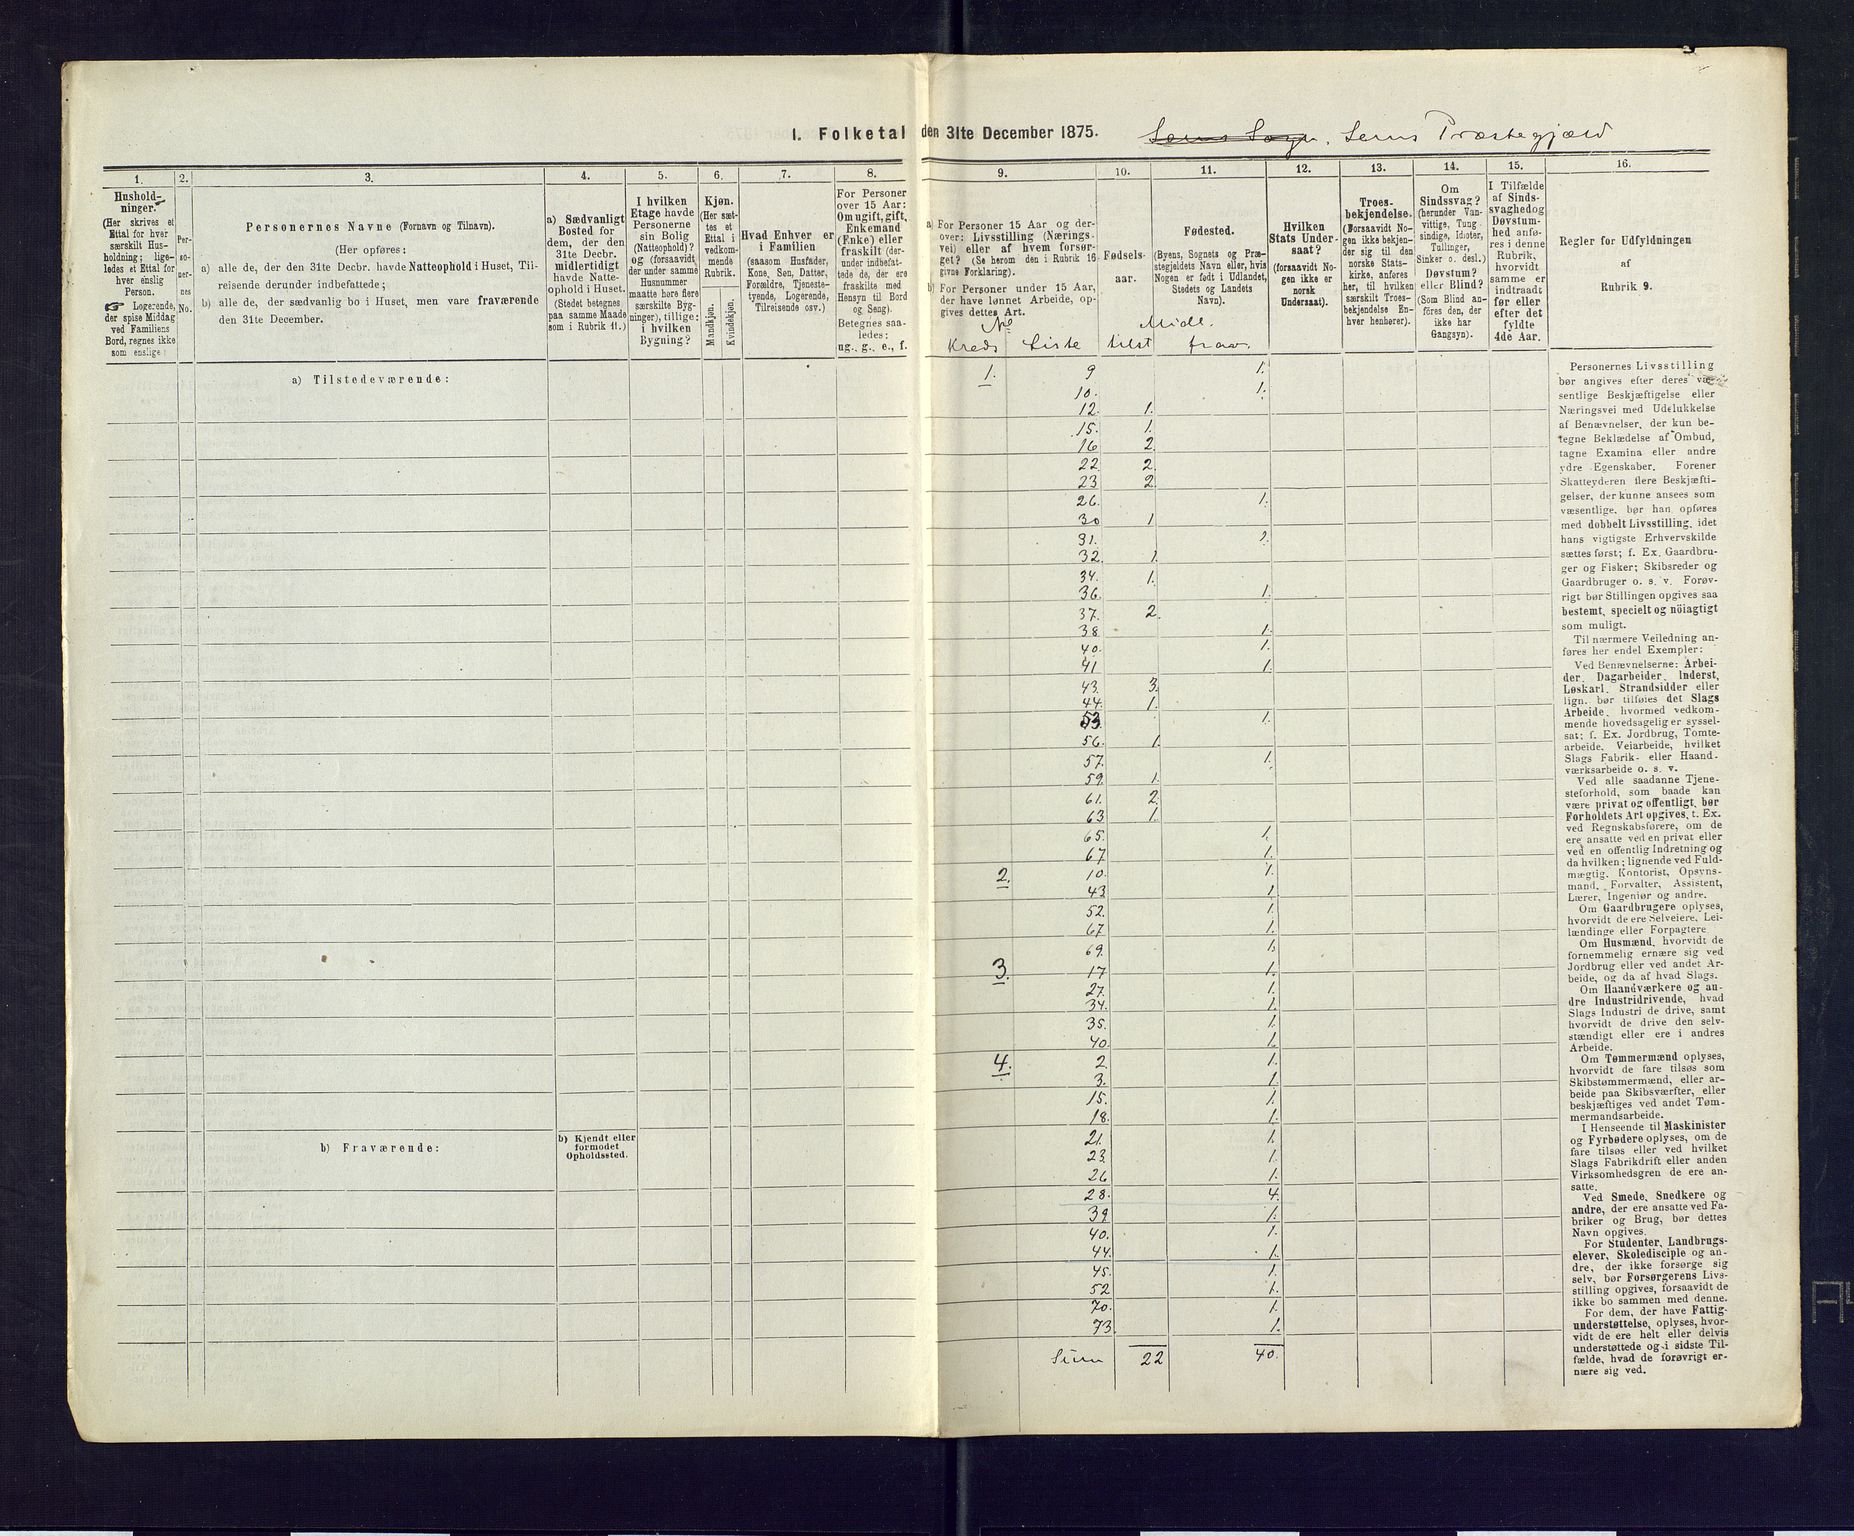 I. Folketal den 31te December 1875. Sems Sogn. Sems Præstegjæld
1. 2. 3. 4. 5. 6. 7. 8. 9. 10. 11. 12. 13. 14. 15. 16.
Hushold-
ninger.
(Her skrives et
Ettal for hver
særskilt Hus-
holdning; lige-
ledes et Ettal for
hver enslig
Person.
☞ Logerende,
der spise Middag
ved Familiens
Bord, regnes ikke
som enslige)
Per-
so-
ner-
nes
No.
Personernes Navne (Fornavn og Tilnavn).
(Her opføres:
a) alle de, der den 31te Decbr. havde Natteophold i Huset, Til-
reisende derunder indbefattede;
b) alle de, der sædvanlig bo i Huset, men vare fraværende
den 31te December.
a) Sædvanligt
Bosted for
dem, der den
31te Decbr.
midlertidigt
havde Natte-
ophold i Huset.
(Stedet betegnes
paa samme Maade
som i Rubrik 11.)
I hvilken
Etage havde
Personerne
sin Bolig
(Natteophold)?
og (forsaavidt
der under samme
Husnummer
maatte høre flere
særskilte Byg-
ninger), tillige:
i hvilken
Bygning?
Kjøn.
(Her sæt-
tes et
Ettal i
vedkom-
mende
Rubrik.
Mandkjøn.
Kvindekjøn.
Hvad Enhver er
i Familien
(saasom Husfader,
Kone, Søn, Datter,
Forældre, Tjeneste-
tyende, Logerende,
Tilreisende osv.)
For Personer
over 15 Aar:
Om ugift, gift,
Enkemand
(Enke) eller
fraskilt (der-
under indbefat-
tede de, der ere
fraskilte med
Hensyn til Bord
og Seng).
Betegnes saa-
ledes:
ug., g., e., f.
a) For Personer 15 Aar og der-
over: Livsstilling (Nærings-
vei) eller af hvem forsør-
get? (Se herom den i Rubrik 16
givne Forklaring).
b) For Personer under 15 Aar,
der have lønnet Arbeide, op-
gives dettes Art.
No
Kreds Liste
Fødsels-
aar.
Fødested.
(Byens, Sognets og Præ-
stegjeldets Navn eller, hvis
Nogen er født i Udlandet,
Stedets og Landets
Navn).
Midl.
tilst frav.
Hvilken
Stats Under-
saat?
(forsaavidt No-
gen ikke er
norsk
Undersaat).
Troes-
bekjendelse.
(Forsaavidt No-
gen ikke bekjen-
der sig til den
norske Stats-
kirke, anføres
her, til hvilken
særskilt Troes-
bekjendelse En-
hver henhører).
Om
Sindssvag?
(herunder Van-
vittige, Tung-
sindige, Idioter,
Tullinger,
Sinker o. desl.)
Døvstum?
eller Blind?
(Som Blind an-
føres den, der
ikke har
Gangsyn).
I Tilfælde
af Sinds-
svaghed og
Døvstum-
hed anfø-
res i denne
Rubrik,
hvorvidt
samme er
indtraadt
før eller
efter det
fyldte
4de Aar.
Regler for Udfyldningen
af
Rubrik 9.
a) Tilstedeværende:
1. 9 1.
10. 1.
12. 1.
15. 1.
16 2.
22 2.
23 2.
26. 1.
30 1
31. 2.
32. 1.
34. 1.
36. 1.
37. 2.
38 1.
40. 1.
41 1.
43. 3.
44. 1.
53. 1.
56. 1.
57. 1.
59. 1.
61. 2.
63 1.
65. 1.
67 1.
2. 10. 1.
43 1.
52. 1.
67 1.
69. 1.
3. 17 1.
27. 1.
34. 1.
35. 1.
40. 1.
4. 2. 1.
3. 1.
15. 1.
18. 1.
21. 1.
23. 1.
26 1.
28. 4.
39 1.
40. 1.
44. 1.
45. 1.
52 1.
70. 1.
73. 1.
Sum 22 40.
b) Fraværende:
b) Kjendt eller
formodet
Opholdssted.
Personernes Livsstilling
bør angives efter deres væ-
sentlige Beskjæftigelse eller
Næringsvei med Udelukkelse
af Benævnelser, der kun be-
tegne Beklædelse af Ombud,
tagne Examina eller andre
ydre Egenskaber. Forener
Skatteyderen flere Beskjæfti-
gelser, der kunne ansees som
væsentlige, bør han opføres
med dobbelt Livsstilling, idet
hans vigtigste Erhvervskilde
sættes først; f. Ex. Gaardbru-
ger og Fisker; Skibsreder og
Gaardbruger o. s. v. Forøv-
rigt bør Stillingen opgives saa
bestemt, specielt og nöiagtigt
som muligt.
Til nærmere Veiledning an-
føres her endel Exempler:
Ved Benævnelserne: Arbei-
der, Dagarbeider, Inderst,
Løskarl, Strandsidder eller
lign. bør tilføies det Slags
Arbeide, hvormed vedkom-
mende hovedsagelig er syssel-
sat; f. Ex. Jordbrug, Tomte-
arbeide, Veiarbeide, hvilket
Slags Fabrik- eller Haand-
værksarbeide o. s. v.
Ved alle saadanne Tjene-
steforhold, som baade kan
være privat og offentligt, bør
Forholdets Art opgives, t. Ex.
ved Regnskabsførere, om de
ere ansatte ved en privat eller
ved en offentlig Indretning og
da hvilken; lignende ved Fuld-
mægtig, Kontorist, Opsyns-
mand, Forvalter, Assistent,
Lærer, Ingeniør og andre.
Om Gaardbrugere oplyses,
hvorvidt de ere Selveiere, Lei-
lændinge eller Forpagtere.
Om Husmænd, hvorvidt de
fornemmelig ernære sig ved
Jordbrug eller ved andet Ar-
beide, og da af hvad Slags.
Om Haandværkere og an-
dre Industridrivende, hvad
Slags Industri de drive, samt
hvorvidt de drive den selv-
stændigt eller ere i andres
Arbeide.
Om Tømmermænd oplyses,
hvorvidt de fare tilsøs som
Skibstømmermænd, eller ar-
beide paa Skibsværfter, eller
beskjæftiges ved andet Tøm-
mermandsarbeide.
I Henseende til Maskinister
og Fyrbødere oplyses, om de
fare tilsøs eller ved hvilket
Slags Fabrikdrift eller anden
Virksomhedsgren de ere an-
satte.
Ved Smede, Snedkere og
andre, der ere ansatte ved Fa-
briker og Brug, bør dettes
Navn opgives.
For Studenter, Landbrugs-
elever, Skoledisciple og an-
dre, der ikke forsørge sig
selv, bør Forsørgerens Livs-
stilling opgives, forsaavidt de
ikke bo sammen med denne.
For dem, der have Fattig-
understøttelse, oplyses, hvor-
vidt de ere helt eller delvis
understøttede og i sidste Til-
fælde, hvad de forøvrigt er-
nære sig ved.